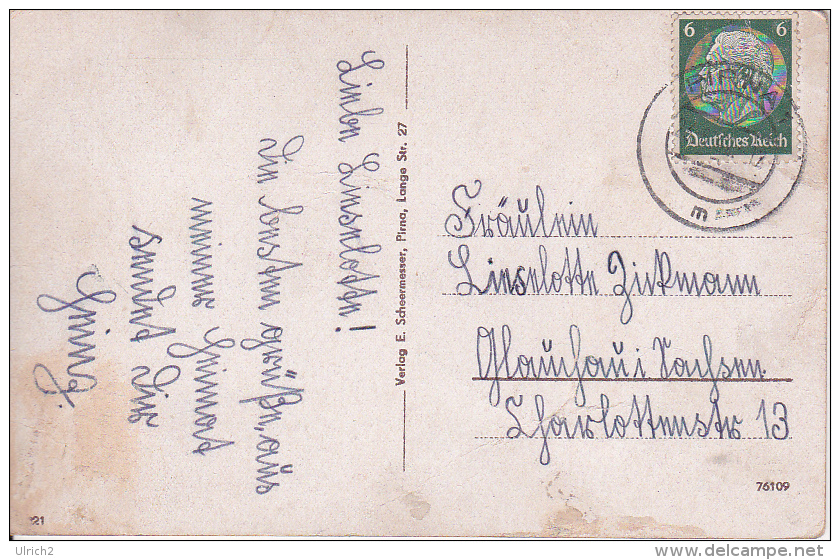 Liebe Lieselotte!
Die besten Grüße, aus
meiner Heimat
Dir
Heinz
Verlag E. Scheermesser, Pirna, Lange Str. 27
6 6
Deutsches Reich
Fräulein
Lieselotte Zickmann
Glauchau i Sachsen
Charlottenstr 13
76109
21
Ulrich2
http://www.delcampe.net